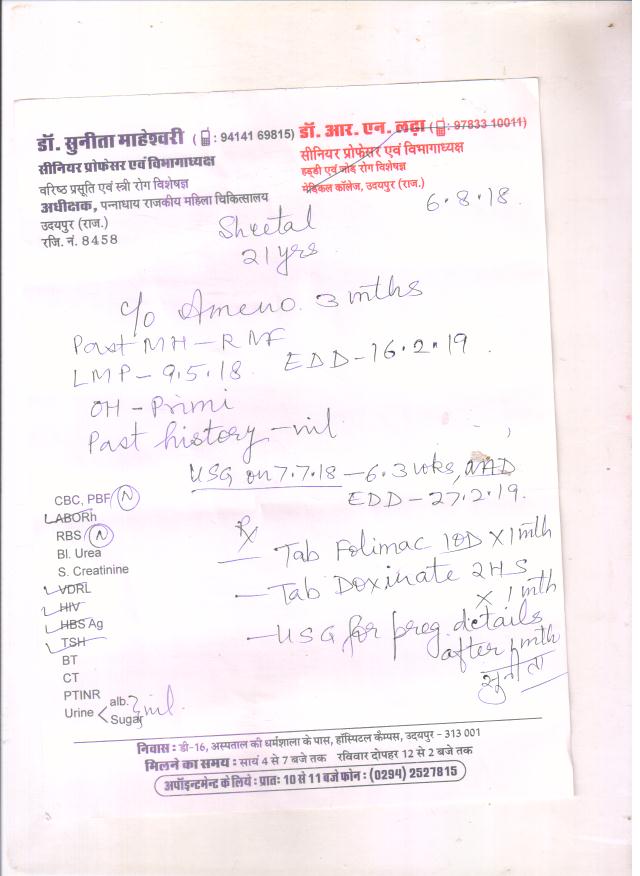 डॉ. सुनीता माहेश्वरी ( : 94141 69815)
सीनियर प्रोफेसर एवं विभागाध्यक्ष
वरिष्ठ प्रसूति एवं स्त्री रोग विशेषज्ञ
अधीक्षक, पन्नाधाय राजकीय महिला चिकित्सालय
उदयपुर (राज.)
रजि. नं. 8458
डॉ. आर. एन. लढ़ा ( : 97833 10011)
सीनियर प्रोफेसर एवं विभागाध्यक्ष
हड्डी एवं जोड़ रोग विशेषज्ञ
मेडिकल कॉलेज, उदयपुर (राज.)
6.8.18.
Sheetal
21 yrs
c/o Ameno. 3 mths
Past MH - RMF
LMP - 9.5.18. EDD - 16.2.19.
OH - Primi
Past history - nil
USG on 7.7.18 - 6.3 wks,
EDD - 27.2.19.
CBC, PBF (N)
ABORh
RBS (N)
Bl. Urea
S. Creatinine
VDRL
HIV
HBS Ag
TSH
BT
CT
PTINR
Urine < alb. Sugar } nil.
Rx
- Tab Folimac 1OD X 1 mth
- Tab Doxinate 2HS
X 1 mth
- USG for preg. details
after 1 mth
सुनीता
निवास : डी-16, अस्पताल की धर्मशाला के पास, हॉस्पिटल कैम्पस, उदयपुर - 313 001
मिलने का समय : सायं 4 से 7 बजे तक रविवार दोपहर 12 से 2 बजे तक
अपॉइन्टमेन्ट के लिये : प्रातः 10 से 11 बजे फोन : (0294) 2527815